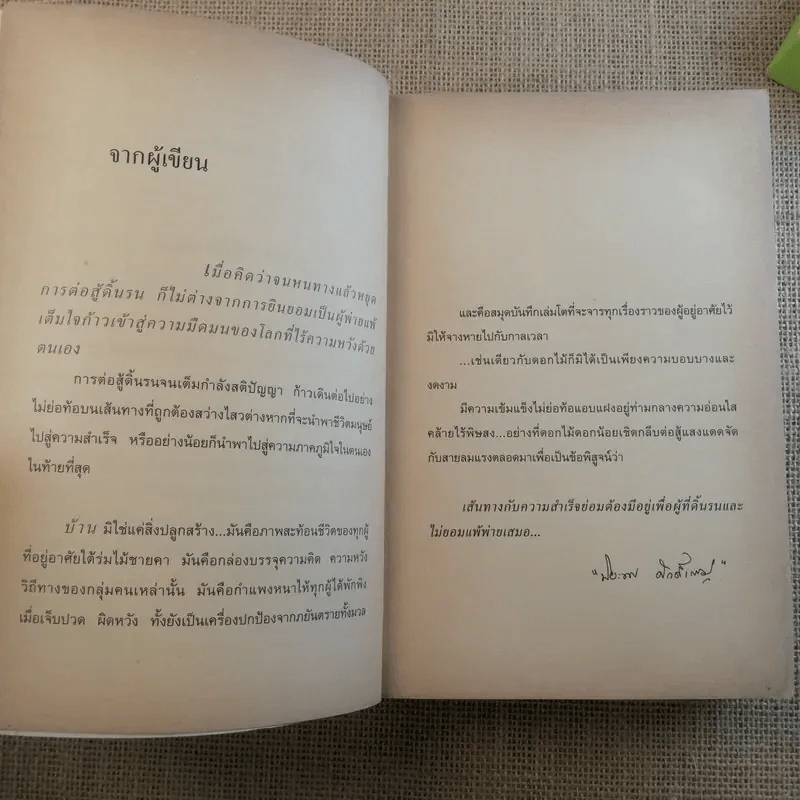 จากผู้เขียน
เมื่อคิดว่าจนหนทางแล้วหยุด
การต่อสู้ดิ้นรน ก็ไม่ต่างจากการยินยอมเป็นผู้พ่ายแพ้
เต็มใจก้าวเข้าสู่ความมืดมนของโลกที่ไร้ความหวังด้วย
ตนเอง
การต่อสู้ดิ้นรนจนเต็มกำลังสติปัญญา ก้าวเดินต่อไปอย่าง
ไม่ย่อท้อบนเส้นทางที่ถูกต้องสว่างไสวต่างหากที่จะนำพาชีวิตมนุษย์
ไปสู่ความสำเร็จ หรืออย่างน้อยก็นำพาไปสู่ความภาคภูมิใจในตนเอง
ในท้ายที่สุด
บ้าน มิใช่แค่สิ่งปลูกสร้าง...มันคือภาพสะท้อนชีวิตของทุกผู้
ที่อยู่อาศัยใต้ร่มไม้ชายคา มันคือกล่องบรรจุความคิด ความหวัง
วิถีทางของกลุ่มคนเหล่านั้น มันคือกำแพงหนาให้ทุกผู้ได้พักพิง
เมื่อเจ็บปวด ผิดหวัง ทั้งยังเป็นเครื่องปกป้องจากภยันตรายทั้งมวล
และคือสมุดบันทึกเล่มโตที่จะจารทุกเรื่องราวของผู้อยู่อาศัยไว้
มิให้จางหายไปกับกาลเวลา
...เช่นเดียวกับดอกไม้ก็มิได้เป็นเพียงความบอบบางและ
งดงาม
มีความเข้มแข็งไม่ย่อท้อแอบแฝงอยู่ท่ามกลางความอ่อนใส
คล้ายไร้พิษสง...อย่างที่ดอกไม้ดอกน้อยเชิดกลีบต่อสู้แสงแดดจัด
กับสายลมแรงตลอดมาเพื่อเป็นข้อพิสูจน์ว่า
เส้นทางกับความสำเร็จย่อมต้องมีอยู่เพื่อผู้ที่ดิ้นรนและ
ไม่ยอมแพ้พ่ายเสมอ...